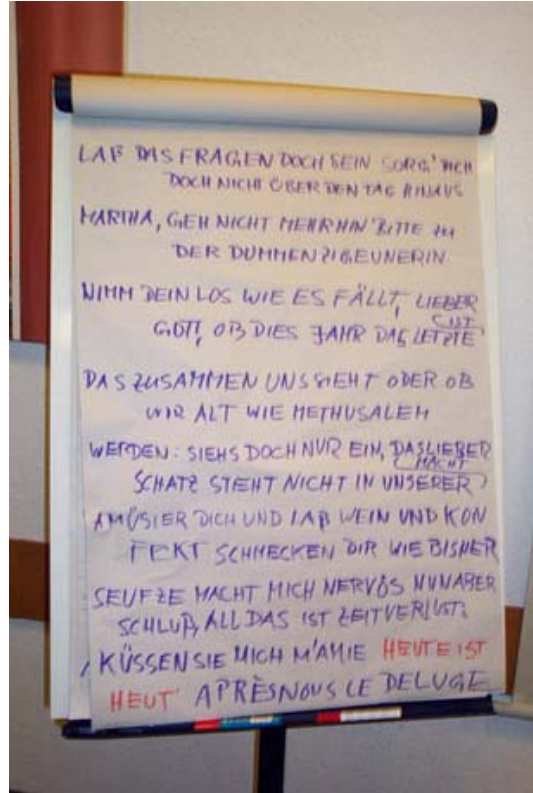 LAß DAS FRAGEN DOCH SEIN SORG' DICH
DOCH NICHT ÜBER DEN TAG HINAUS
MARTHA, GEH NICHT MEHR HIN BITTE ZU
DER DUMMEN ZIGEUNERIN
NIMM DEIN LOS WIE ES FÄLLT, LIEBER
GOTT, OB DIES JAHR DAS LETZTE IST
DAS ZUSAMMEN UNS SIEHT ODER OB
WIR ALT WIE METHUSALEM
WERDEN: SIEHS DOCH NUR EIN, DAS LIEBER
SCHATZ STEHT NICHT IN UNSERER MACHT
AMÜSIER DICH UND LAß WEIN UND KON
FEKT SCHMECKEN DIR WIE BISHER
SEUFZE MACHT MICH NERVÖS NUN ABER
SCHLUß, ALL DAS IST ZEITVERLUST:
KÜSSEN SIE MICH M'AMIE HEUTE IST
HEUT' APRÈS NOUS LE DELUGE